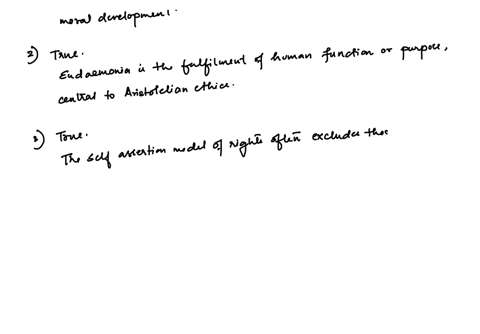 moral development.
2) True.
Eudaemonia is the fulfilment of human function or purpose,
central to Aristotelian ethics.
3) True.
The self assertion model of rights often excludes those